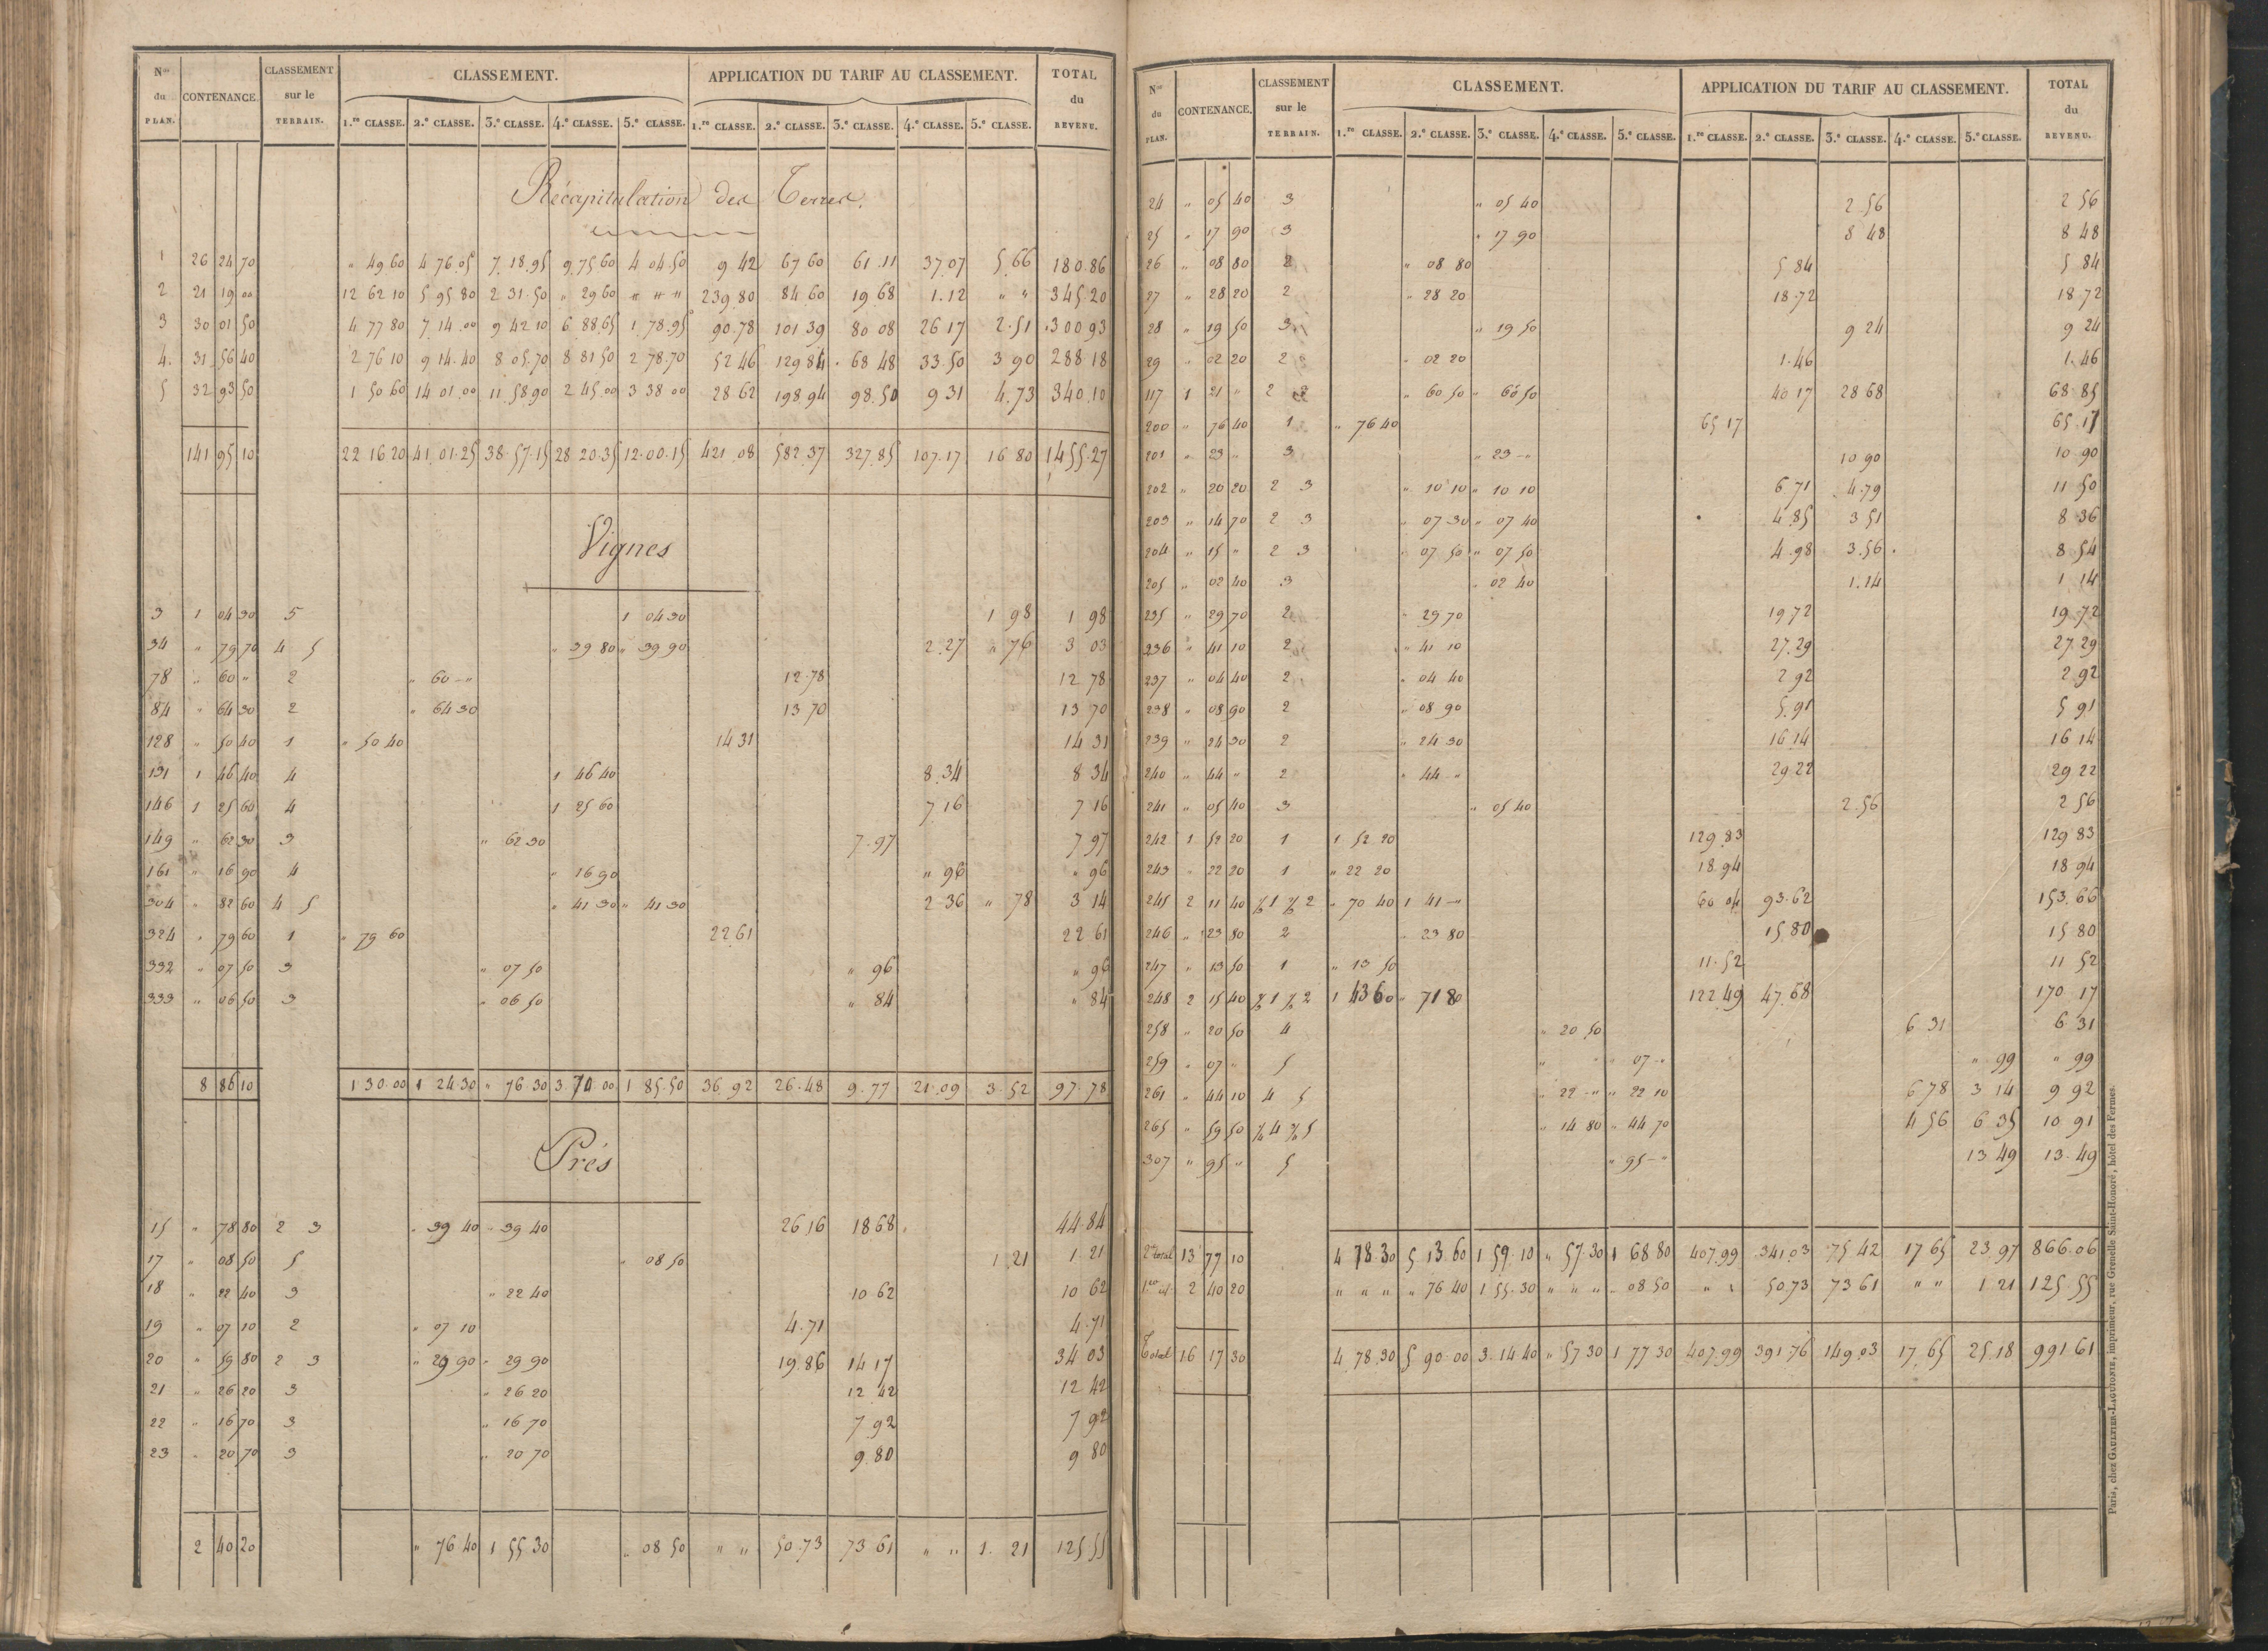 Nos du PLAN. CONTENANCE. CLASSEMENT sur le TERRAIN. CLASSEMENT. APPLICATION DU TARIF AU CLASSEMENT. TOTAL du REVENU.
1.re CLASSE. 2.e CLASSE. 3.e CLASSE. 4.e CLASSE. 5.e CLASSE. 1.re CLASSE. 2.e CLASSE. 3.e CLASSE. 4.e CLASSE. 5.e CLASSE.
Récapitulation des Terres.
1 26 24 70 " 49.60 4 76.05 7.18.95 9.75 60 4 04.50 9 42 67 60 61.11 37.07 5.66 180.86
2 21 19 00 12 62 10 5 95 80 2 31.50 " 29 60 " " " 239 80 84 60 19 68 1.12 " " 345.20
3 30 01 50 4 77 80 7.14.00 9 42 10 6 88.65 1.78.95 90.78 101 39 80 08 26 17 2.51 300 93
4. 31 56 40 2 76 10 9 14.40 8 05.70 8 81 50 2 78.70 52 46 129 84 68 48 33.50 3 90 288 18
5 32 93 50 1 50 60 14 01.00 11.58 90 2 45.00 3 38 00 28 62 198.94 98.50 9 31 4.73 340.10
141 95 10 22 16 20 41.01.25 38.57.15 28 20.35 12.00.15 421.08 582.37 327.85 107.17 16 80 1455.27
Vignes
3 1 04 30 5 1 04 30 1 98 1 98
34 " 79 70 4 5 " 39 80 " 39 90 2.27 " 76 3 03
78 " 60 " 2 " 60 - " 12.78 12 78
84 " 64 30 2 " 64 30 13 70 13 70
128 " 50 40 1 " 50 40 14 31 14 31
131 1 46 40 4 1 46 40 8.34 8 34
146 1 25 60 4 1 25 60 7 16 7 16
149 " 62 30 3 " 62 30 7.97 7 97
161 " 16 90 4 " 16 90 " 96 " 96
304 " 82 60 4 5 " 41 30 " 41 30 2 36 " 78 3 14
324 " 79 60 1 " 79 60 22 61 22 61
332 " 07 50 3 " 07 50 " 96 " 96
333 " 06 50 3 " 06 50 " 84 " 84
8 86 10 1 30.00 1 24.30 " 76 30 3.70.00 1 85.50 36.92 26.48 9.77 21.09 3.52 97.78
Prés
15 " 78 80 2 3 " 39 40 " 39 40 26 16 18 68 44.84
17 " 08 50 5 " 08 50 1 21 1 21
18 " 22 40 3 " 22 40 10 62 10 62
19 " 07 10 2 " 07 10 4.71 4.71
20 " 59 80 2 3 " 29 90 " 29 90 19.86 14 17 34 03
21 " 26 20 3 " 26 20 12 42 12 42
22 " 16 70 3 " 16 70 7.92 7 92
23 " 20 70 3 " 20 70 9.80 9 80
2 40 20 " 76 40 1 55 30 " 08 50 " " 50.73 73 61 " " 1. 21 125 55
Nos du PLAN. CONTENANCE. CLASSEMENT sur le TERRAIN. CLASSEMENT. APPLICATION DU TARIF AU CLASSEMENT. TOTAL du REVENU.
1.re CLASSE. 2.e CLASSE. 3.e CLASSE. 4.e CLASSE. 5.e CLASSE. 1.re CLASSE. 2.e CLASSE. 3.e CLASSE. 4.e CLASSE. 5.e CLASSE.
24 " 05 40 3 " 05 40 2.56 2 56
25 " 17 90 3 " 17 90 8 48 8 48
26 " 08 80 2 " 08 80 5 84 5 84
27 " 28 20 2 " 28 20 18.72 18.72
28 " 19 50 3 " 19 50 9 24 9 24
29 " 02 20 2 " 02 20 1.46 1.46
117 1 21 " 2 3 " 60 50 " 60 50 40 17 28 68 68.85
200 " 76 40 1 " 76 40 65 17 65.17
201 " 23 " 3 " 23 - " 10 90 10 90
202 " 20 20 2 3 " 10 10 " 10 10 6 71 4.79 11 50
203 " 14 70 2 3 " 07 30 " 07 40 4.85 3 51 8 36
204 " 15 " 2 3 " 07 50 " 07 50 4.98 3.56 8.54
205 " 02 40 3 " 02 40 1.14 1 14
235 " 29 70 2 " 29 70 19 72 19.72
236 " 41 10 2 " 41 10 27.29 27.29
237 " 04 40 2 " 04 40 2 92 2.92
238 " 08 90 2 " 08 90 5.91 5 91
239 " 24 30 2 " 24 30 16 14 16 14
240 " 44 " 2 " 44 - " 29 22 29 22
241 " 05 40 3 " 05 40 2.56 2 56
242 1 52 20 1 1 52 20 129.83 129 83
243 " 22 20 1 " 22 20 18.94 18 94
245 2 11 40 1 2 " 70 40 1 41 - " 60 04 93.62 153.66
246 " 23 80 2 " 23 80 15.80 15 80
247 " 13 50 1 " 13 50 11.52 11 52
248 2 15 40 1 2 1 43 60 " 71 80 122 49 47.68 170 17
258 " 20 50 4 " 20 50 6 31 6 31
259 " 07 " 5 " 07 - " " 99 " 99
261 " 44 10 4 5 " 22 - " " 22 10 6 78 3 14 9 92
265 " 59 50 4 5 " 14 80 " 44 70 4 56 6 35 10 91
307 " 95 " 5 " 95 - " 13 49 13.49
2e total 13 77 10 4 78.30 5 13.60 1 59.10 " 57.30 1 68 80 407.99 341.03 75 42 17 65 23.97 866.06
1er id 2 40 20 " " " " 76 40 1 55.30 " " " " 08 50 " " 50.73 73 61 " " 1 21 125.55
Total 16 17 30 4 78.30 5 90.00 3.14 40 " 57 30 1 77 30 407.99 391 76 149.03 17.65 25.18 991 61
Paris, chez GAULTIER-LAGUIONIE, imprimeur, rue Grenelle Saint-Honoré, hôtel des Fermes.